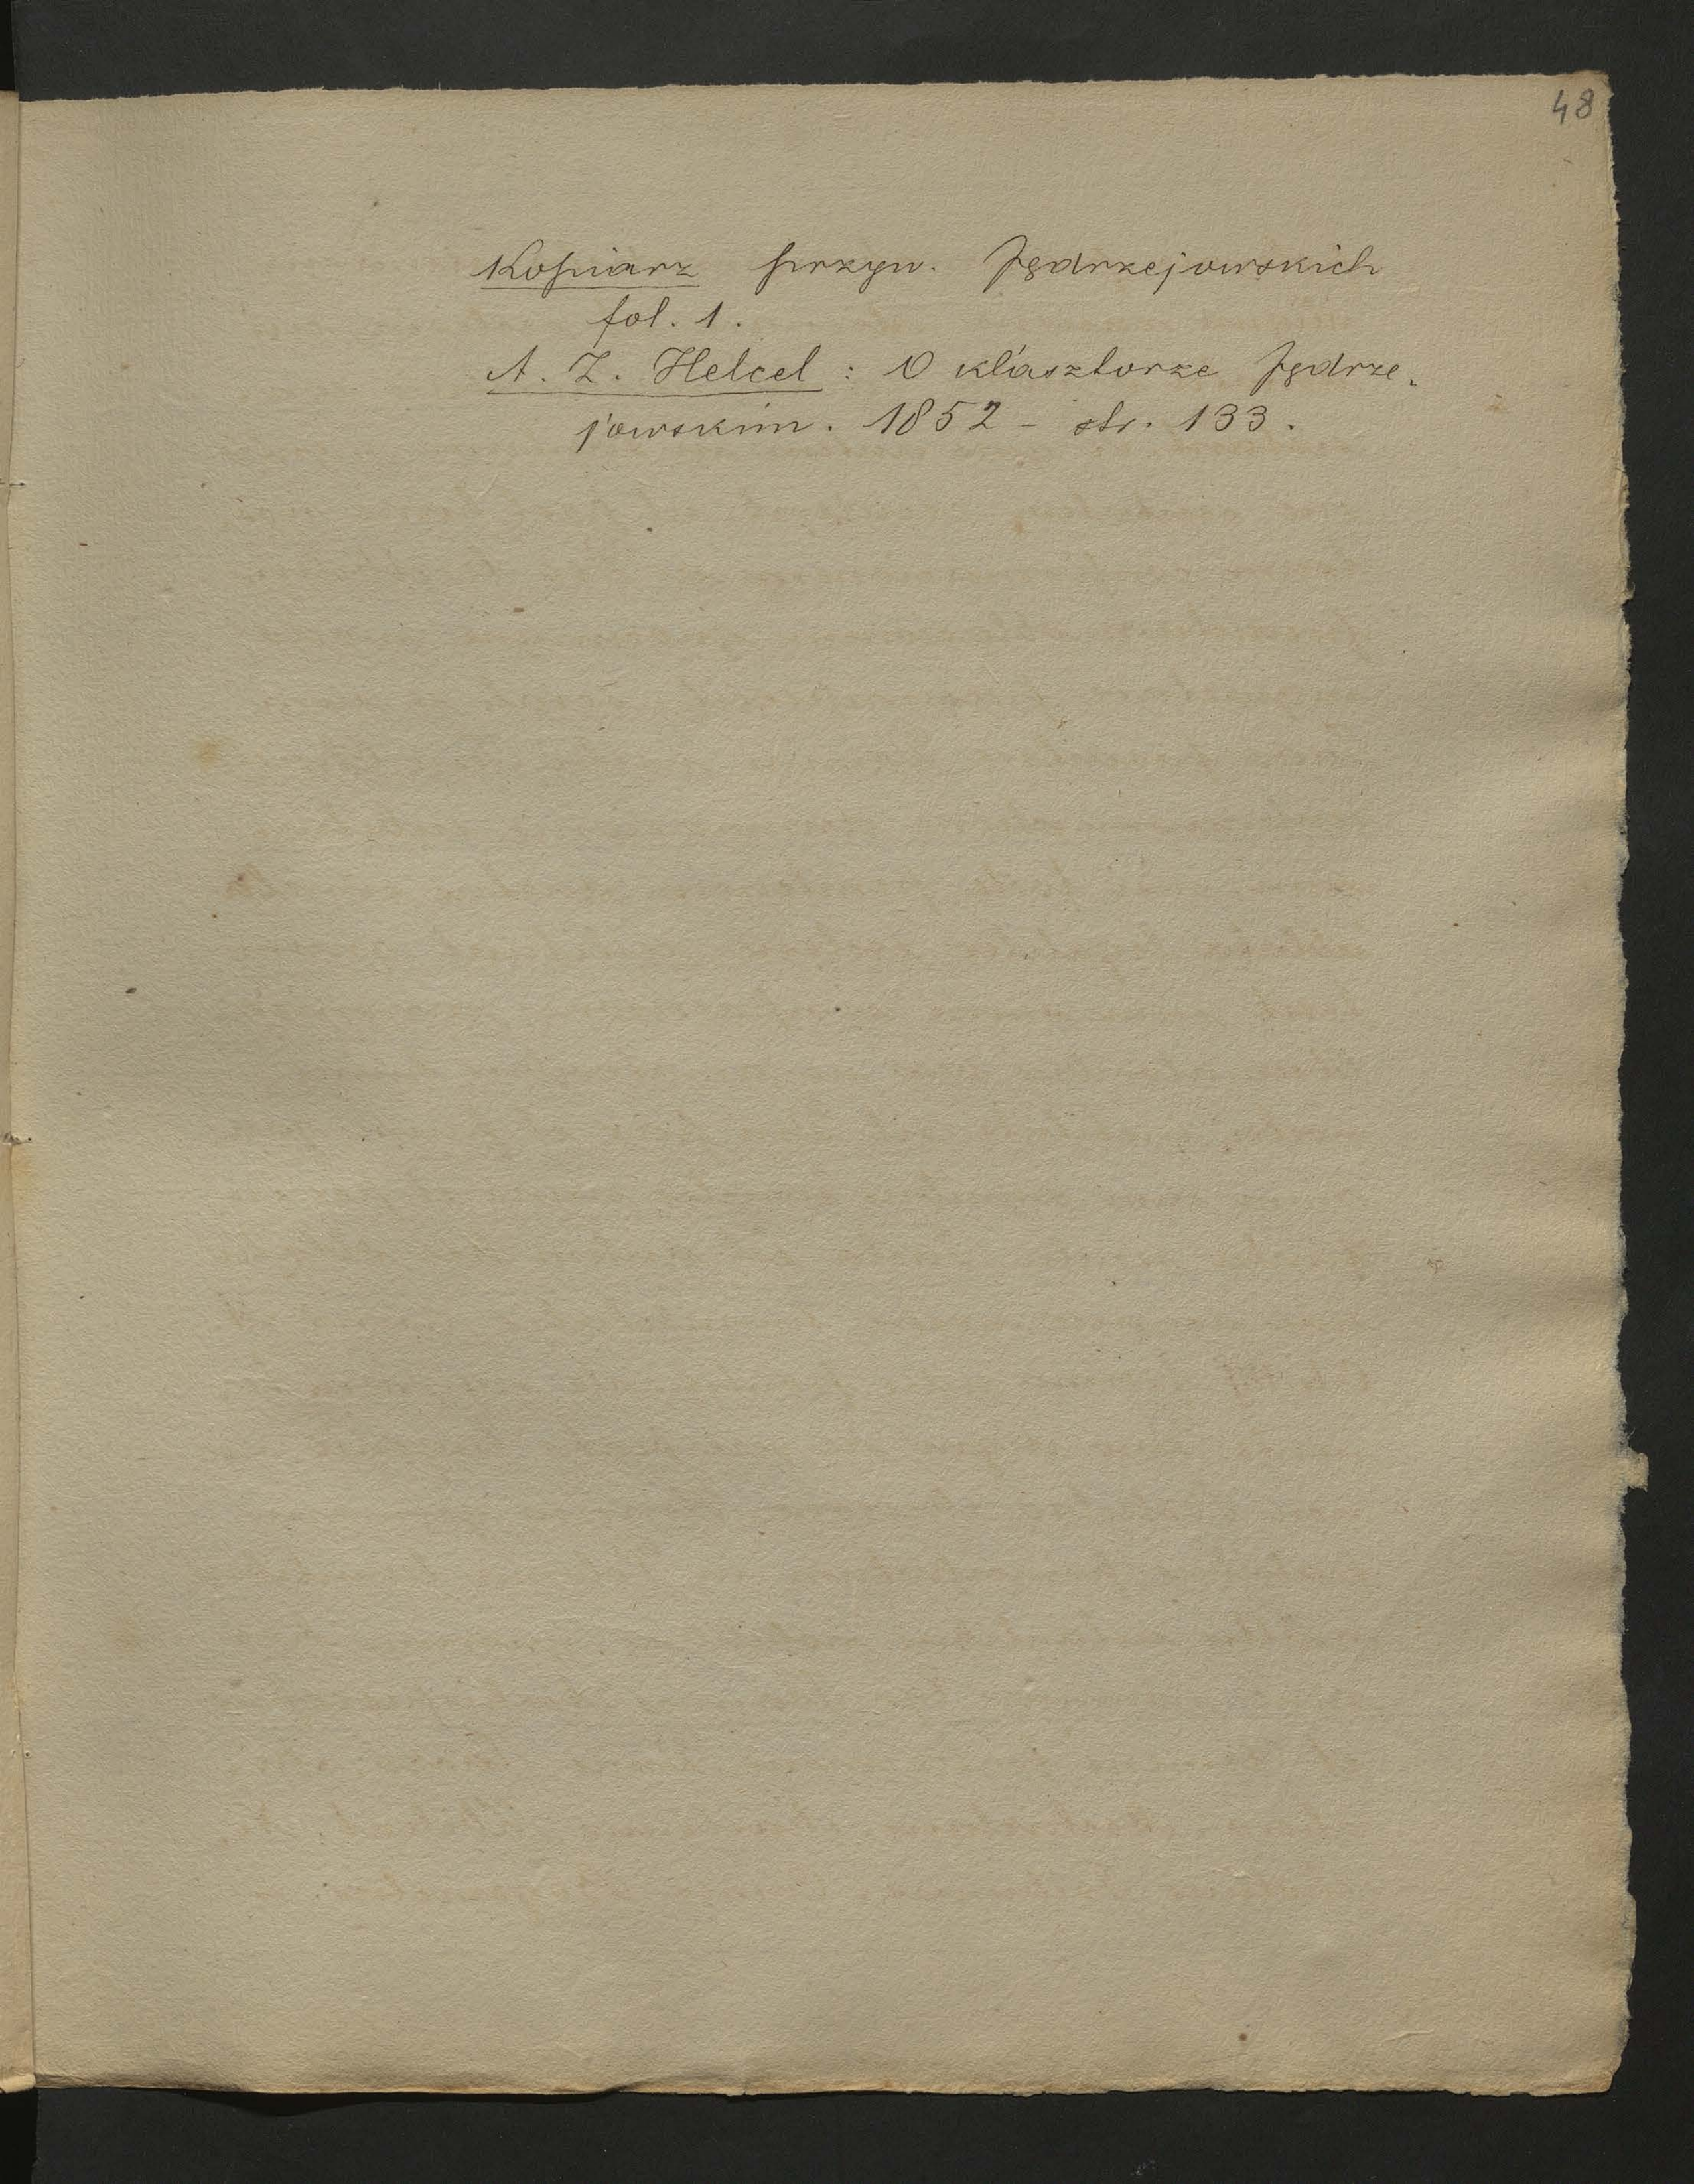 48
Kopiarz przyw. Jędrzejowskich
fol. 1.
A. Z. Helcel : O klasztorze Jędrze-
jowskim. 1852 - str. 133.